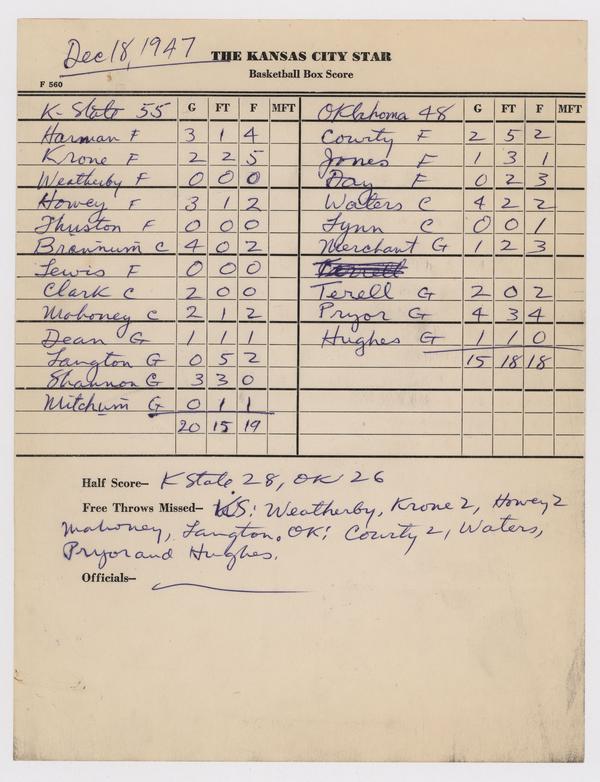 Dec 18, 1947 THE KANSAS CITY STAR
Basketball Box Score
F 560
K-State 55 G FT F MFT
Harman F 3 1 4
Krone F 2 2 5
Weatherby F 0 0 0
Howey F 3 1 2
Thuston F 0 0 0
Brannum C 4 0 2
Lewis F 0 0 0
Clark C 2 0 0
Mahoney C 2 1 2
Dean G 1 1 1
Langton G 0 5 2
Shannon G 3 3 0
Mitchum G 0 1 1
20 15 19
Oklahoma 48 G FT F MFT
Courty F 2 5 2
Jones F 1 3 1
Day F 0 2 3
Waters C 4 2 2
Lynn C 0 0 1
Merchant G 1 2 3
Terell G 2 0 2
Pryor G 4 3 4
Hughes G 1 1 0
15 18 18
Half Score– K State 28, OK 26
Free Throws Missed– KS: Weatherby, Krone 2, Howey 2
Mahoney, Langton. OK: Courty 2, Waters,
Pryor and Hughes.
Officials–